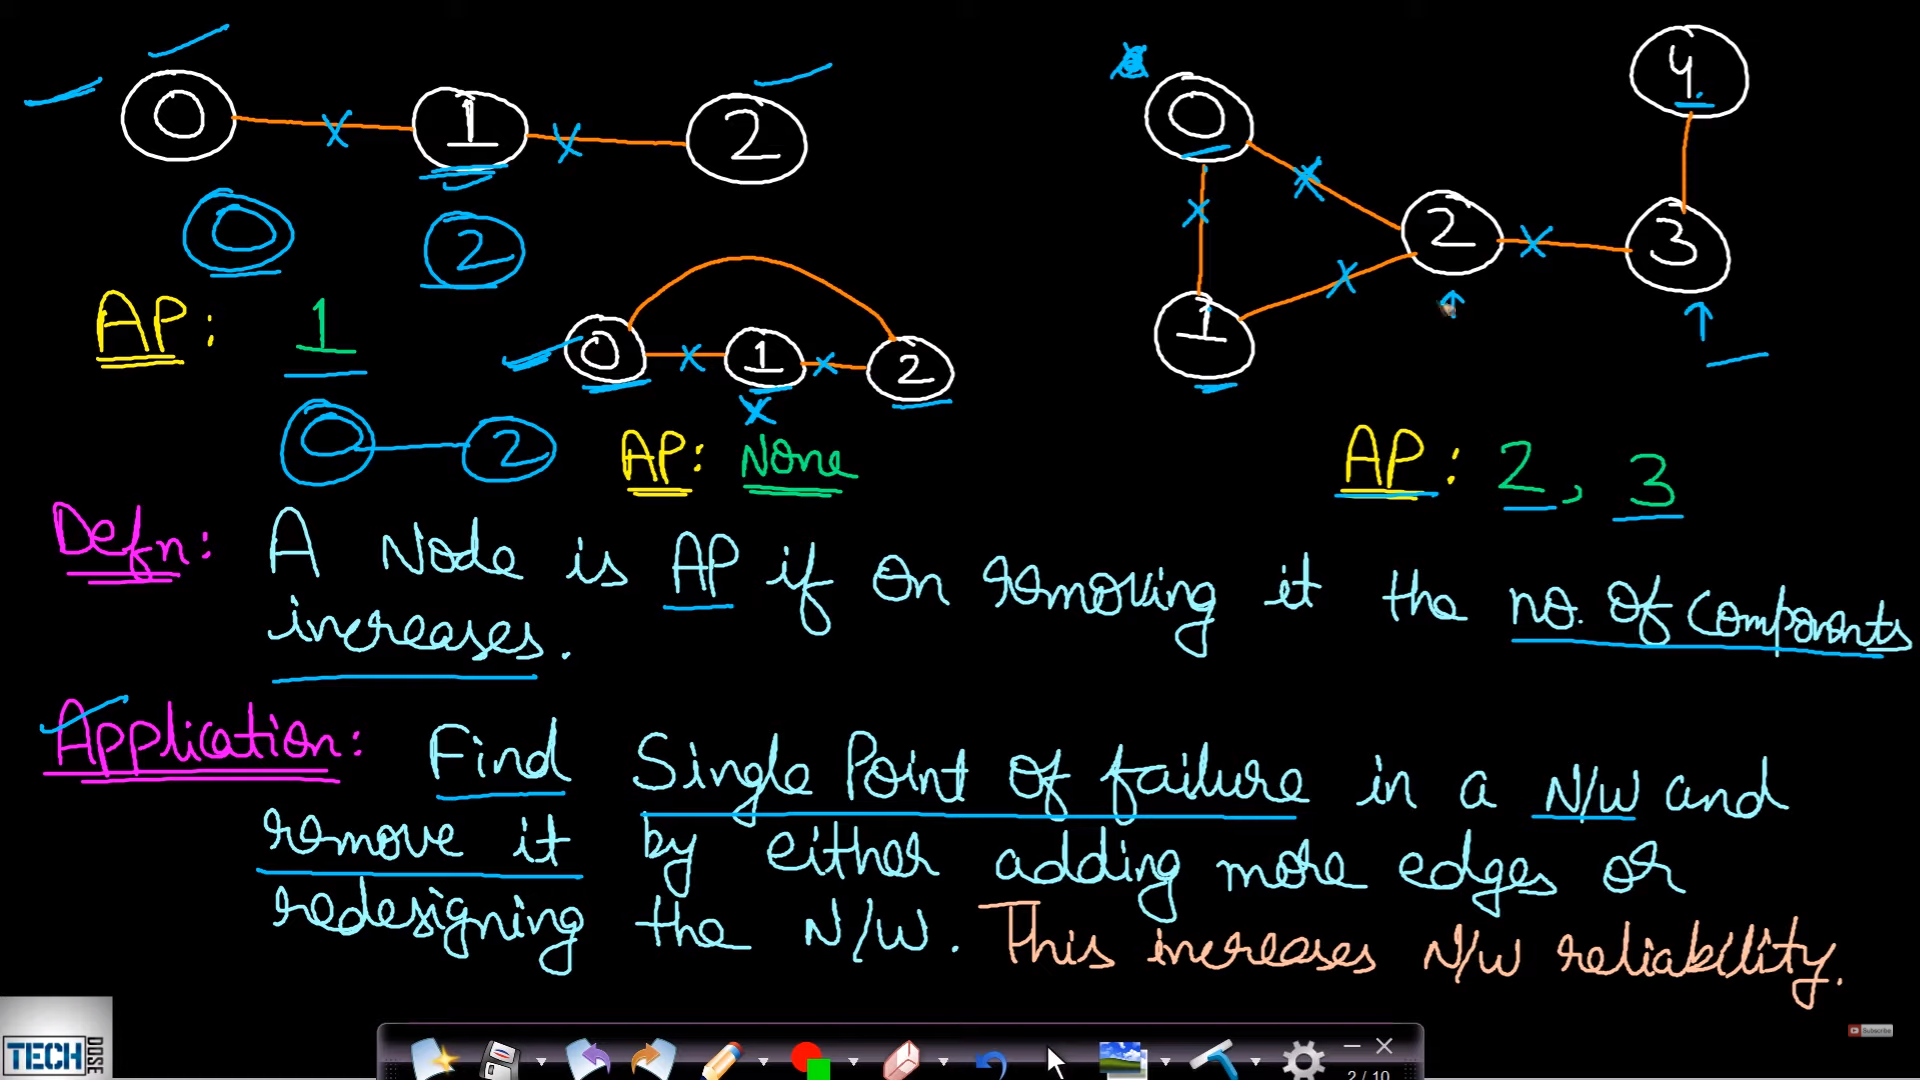 0 1 2
0 2
AP: 1
0 1 2
0 2
AP: None
0 1 2 3 4
AP: 2, 3
Defn: A Node is AP if on removing it the no. of components
increases.
Application: Find Single Point of failure in a N/W and
remove it by either adding more edges or
redesigning the N/W. This increases N/W reliability.
TECH DOSE
Subscribe
2 / 10